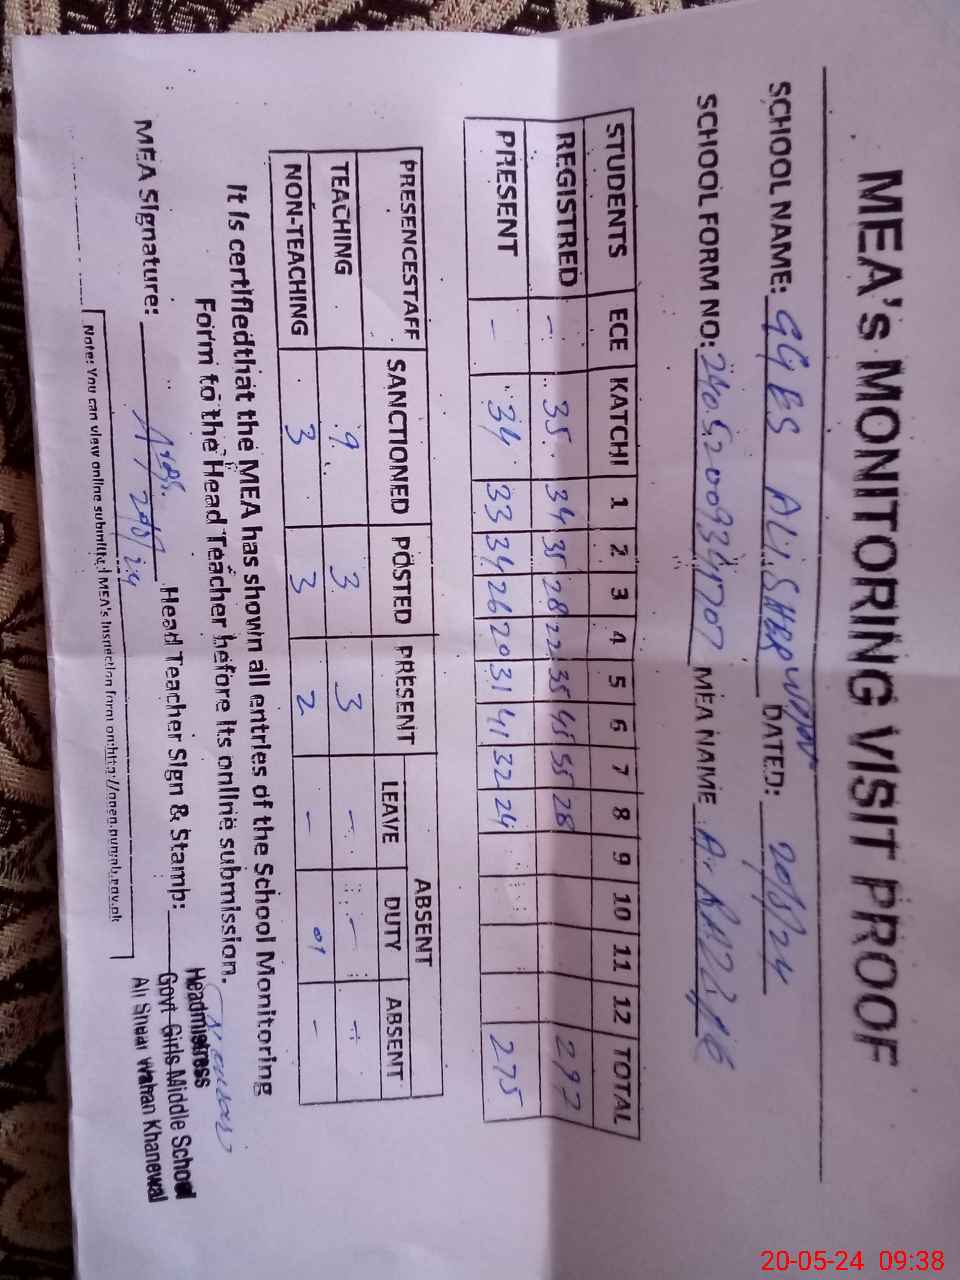 MEA's MONITORING VISIT PROOF
SCHOOL NAME: GGES ALI SHER WAHAN DATED: 20/5/24
SCHOOL FORM NO: MEA NAME
STUDENTS ECE KATCHI 1 2 3 4 5 6 7 8 9 10 11 12 TOTAL
REGISTRED - 35 34 35 28 22 35 45 35 28 297
PRESENT - 34 33 34 26 20 31 41 32 24 275
PRESENCESTAFF SANCTIONED POSTED PRESENT ABSENT
LEAVE DUTY ABSENT
TEACHING 9 3 3 - - -
NON-TEACHING 3 3 2 - 01 -
It is certifiedthat the MEA has shown all entries of the School Monitoring
Form to the Head Teacher before its online submission.
MEA Signature: Head Teacher Sign & Stamp:
20/5/24
Headmistress
Govt Girls Middle School
Ali Shear Wahan Khanewal
Note: You can view online submitted MEA's Inspection form on:http://open.punjab.gov.pk
20-05-24 09:38